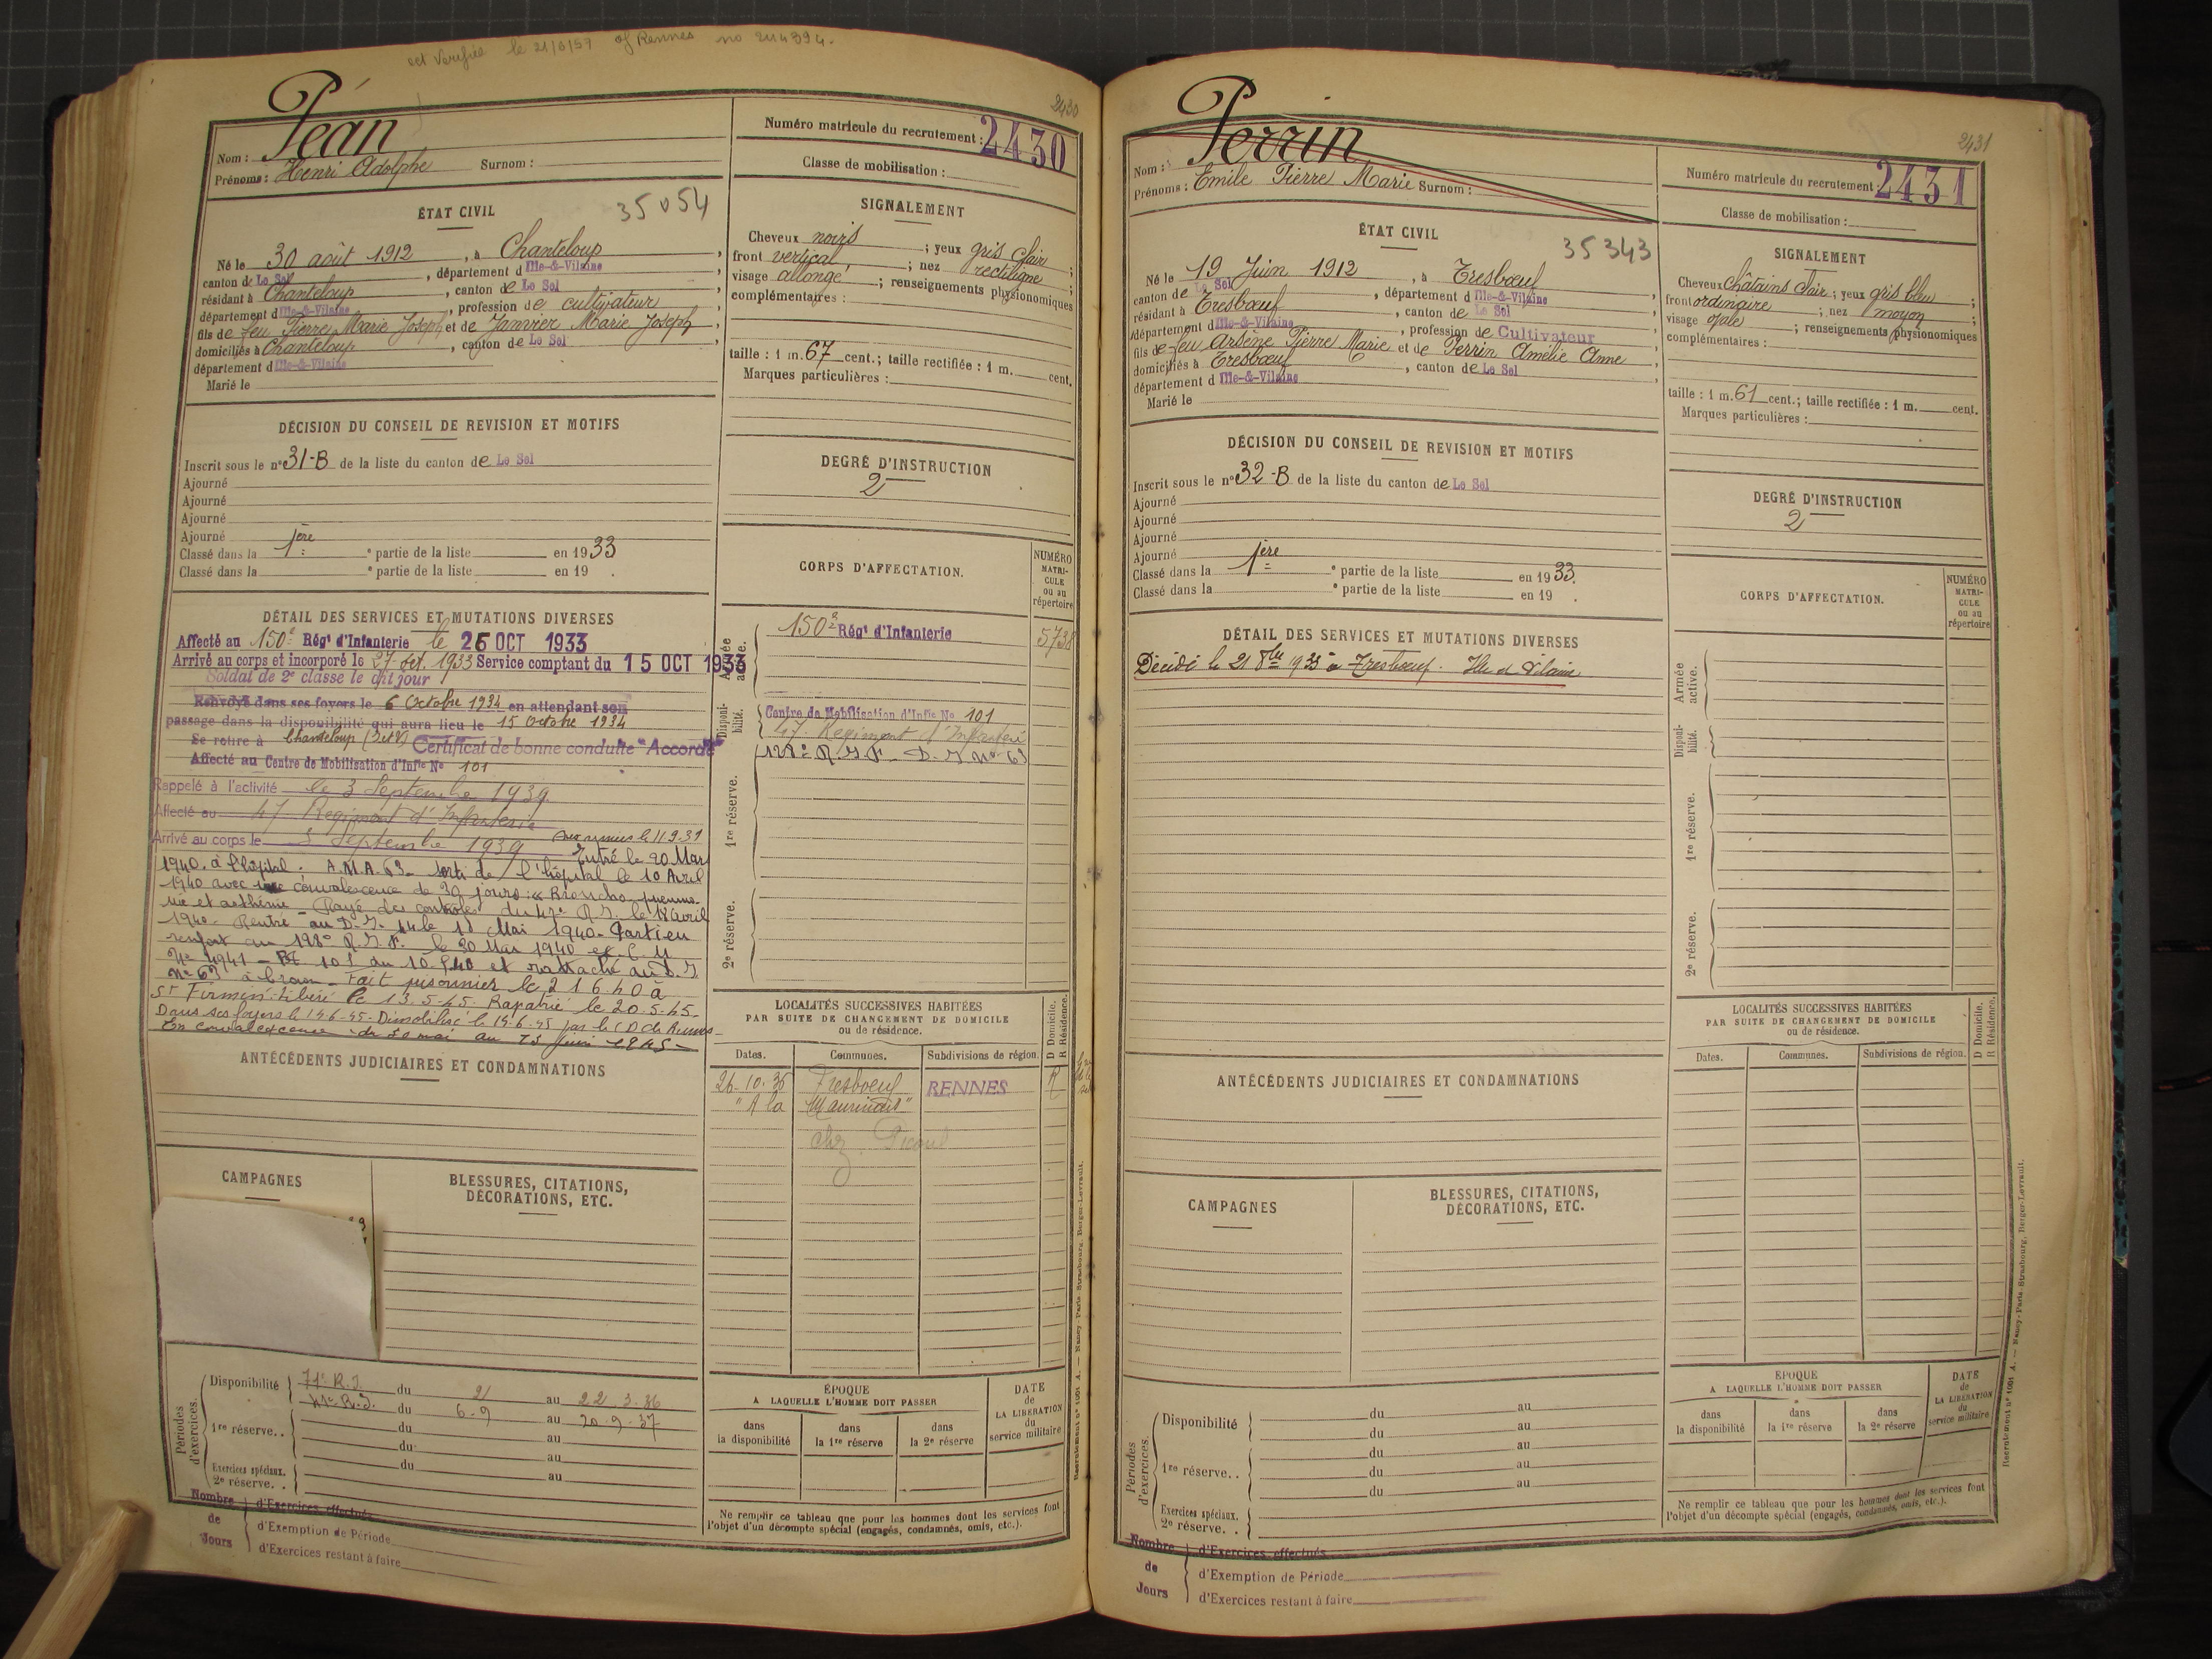 ect Verifiée le 21/8/57 of Rennes no 2114394.
2430
Péan
Nom :
Prénoms : Henri Adolphe Surnom :
Numéro matricule du recrutement : 2430
Classe de mobilisation :
ÉTAT CIVIL
35054
Né le 30 août 1912, à Chanteloup,
canton de Le Sel, département d Ille-&-Vilaine,
résidant à Chanteloup, canton de Le Sel,
département d Ille-&-Vilaine, profession de cultivateur,
fils de feu Pierre Marie Joseph et de Janvier Marie Joseph,
domiciliés à Chanteloup, canton de Le Sel,
département d Ille-&-Vilaine
Marié le
SIGNALEMENT
Cheveux noirs ; yeux gris clair ;
front vertical ; nez rectiligne ;
visage allongé ; renseignements physionomiques
complémentaires :
taille : 1 m. 67 cent. ; taille rectifiée : 1 m. cent.
Marques particulières :
DÉCISION DU CONSEIL DE REVISION ET MOTIFS
Inscrit sous le n° 31-B de la liste du canton de Le Sel
Ajourné
Ajourné
Ajourné
Ajourné
Classé dans la 1ère e partie de la liste en 1933
Classé dans la e partie de la liste en 19 .
DEGRÉ D'INSTRUCTION
2
DÉTAIL DES SERVICES ET MUTATIONS DIVERSES
Affecté au 150e Régt d'Infanterie le 26 OCT 1933
Arrivé au corps et incorporé le 27 oct. 1933 Service comptant du 15 OCT 1933
Soldat de 2e classe le dit jour
Renvoyé dans ses foyers le 6 Octobre 1934 en attendant son
passage dans la disponibilité qui aura lieu le 15 Octobre 1934
Se retire à Chanteloup (I et V) Certificat de bonne conduite "Accordé"
Affecté au Centre de Mobilisation d'Infie No 101
Rappelé à l'activité le 3 Septembre 1939
Affecté au 47 Régiment d'Infanterie
Arrivé au corps le 5 Septembre 1939 aux armées le 11.9.39
Entré le 20 Mars
1940 à l'hôpital. A.M.A. 63 - sorti de l'hôpital le 10 Avril
1940 avec une convalescence de 30 jours : "Broncho pneumo-
nie et asthénie - Rayé des contrôles du 47e R.I. le 18 avril
1940 - Rentré au D.I. 44 le 11 Mai 1940 - Parti en
renfort au 128e R.I.F. le 20 Mai 1940
au 10.5.40 et rattaché au D.I.
N° 63 - Fait prisonnier le 21.6.40 à
St Firmin. Libéré le 13.5.45. Rapatrié le 20.5.45.
Dans ses foyers le 14-6-45. Démobilisé le 14.6.45 par le C.D. de Rennes
En convalescence du 20 mai au 13 Juin 1945 -
CORPS D'AFFECTATION.
NUMÉRO MATRI-CULE ou au répertoire
Armée active.
150e Régt d'Infanterie 5738
Disponi-bilité.
Centre de Mobilisation d'Infie No 101
47 Régiment d'Infanterie
128e R.I.F. D.I. No 63
1re réserve.
2e réserve.
LOCALITÉS SUCCESSIVES HABITÉES
PAR SUITE DE CHANGEMENT DE DOMICILE
ou de résidence.
D Domicile.
R Résidence.
Dates. Communes. Subdivisions de région.
26-10-35 Tresboeuf RENNES R
"A la Maurinais"
chez
ANTÉCÉDENTS JUDICIAIRES ET CONDAMNATIONS
CAMPAGNES
BLESSURES, CITATIONS,
DÉCORATIONS, ETC.
Périodes d'exercices.
Disponibilité 71e R.I. du 2 au 22.3.36
41e R.I. du 6-9 au 20-9-37
1re réserve. . du au
du au
du au
Exercices spéciaux.
2e réserve. .
Nombre de Jours
d'Exercices effectués
d'Exemption de Période
d'Exercices restant à faire
ÉPOQUE
A LAQUELLE L'HOMME DOIT PASSER
dans la disponibilité
dans la 1re réserve
dans la 2e réserve
DATE de LA LIBÉRATION du service militaire
Ne remplir ce tableau que pour les hommes dont les services font
l'objet d'un décompte spécial (engagés, condamnés, omis, etc.).
Recrutement n° 1001 A. — Nancy-Paris-Strasbourg, Berger-Levrault.
2431
Perrin
Nom :
Prénoms : Emile Pierre Marie Surnom :
Numéro matricule du recrutement : 2431
Classe de mobilisation :
ÉTAT CIVIL
35343
Né le 19 Juin 1912, à Tresbœuf
canton de Le Sel, département d Ille-&-Vilaine,
résidant à Tresbœuf, canton de Le Sel,
département d Ille-&-Vilaine, profession de Cultivateur,
fils de feu Arsène Pierre Marie et de Perrin Amélie Anne,
domiciliés à Tresbœuf, canton de Le Sel,
département d Ille-&-Vilaine
Marié le
SIGNALEMENT
Cheveux châtains clair ; yeux gris bleu ;
front ordinaire ; nez moyen ;
visage ovale ; renseignements physionomiques
complémentaires :
taille : 1 m. 61 cent. ; taille rectifiée : 1 m. cent.
Marques particulières :
DÉCISION DU CONSEIL DE REVISION ET MOTIFS
Inscrit sous le n° 32-B de la liste du canton de Le Sel
Ajourné
Ajourné
Ajourné
Ajourné
Classé dans la 1ère e partie de la liste en 1933.
Classé dans la e partie de la liste en 19 .
DEGRÉ D'INSTRUCTION
2
DÉTAIL DES SERVICES ET MUTATIONS DIVERSES
Décédé le 21 8bre 1933 à Tresboeuf. Ille et Vilaine
CORPS D'AFFECTATION.
NUMÉRO MATRI-CULE ou au répertoire
Armée active.
Disponi-bilité.
1re réserve.
2e réserve.
LOCALITÉS SUCCESSIVES HABITÉES
PAR SUITE DE CHANGEMENT DE DOMICILE
ou de résidence.
D Domicile.
R Résidence.
Dates. Communes. Subdivisions de région.
ANTÉCÉDENTS JUDICIAIRES ET CONDAMNATIONS
CAMPAGNES
BLESSURES, CITATIONS,
DÉCORATIONS, ETC.
Périodes d'exercices.
Disponibilité du au
du au
1re réserve. . du au
du au
du au
Exercices spéciaux.
2e réserve. .
Nombre de Jours
d'Exercices effectués
d'Exemption de Période
d'Exercices restant à faire
ÉPOQUE
A LAQUELLE L'HOMME DOIT PASSER
dans la disponibilité
dans la 1re réserve
dans la 2e réserve
DATE de LA LIBÉRATION du service militaire
Ne remplir ce tableau que pour les hommes dont les services font
l'objet d'un décompte spécial (engagés, condamnés, omis, etc.).
Recrutement n° 1001 A. — Nancy-Paris-Strasbourg, Berger-Levrault.